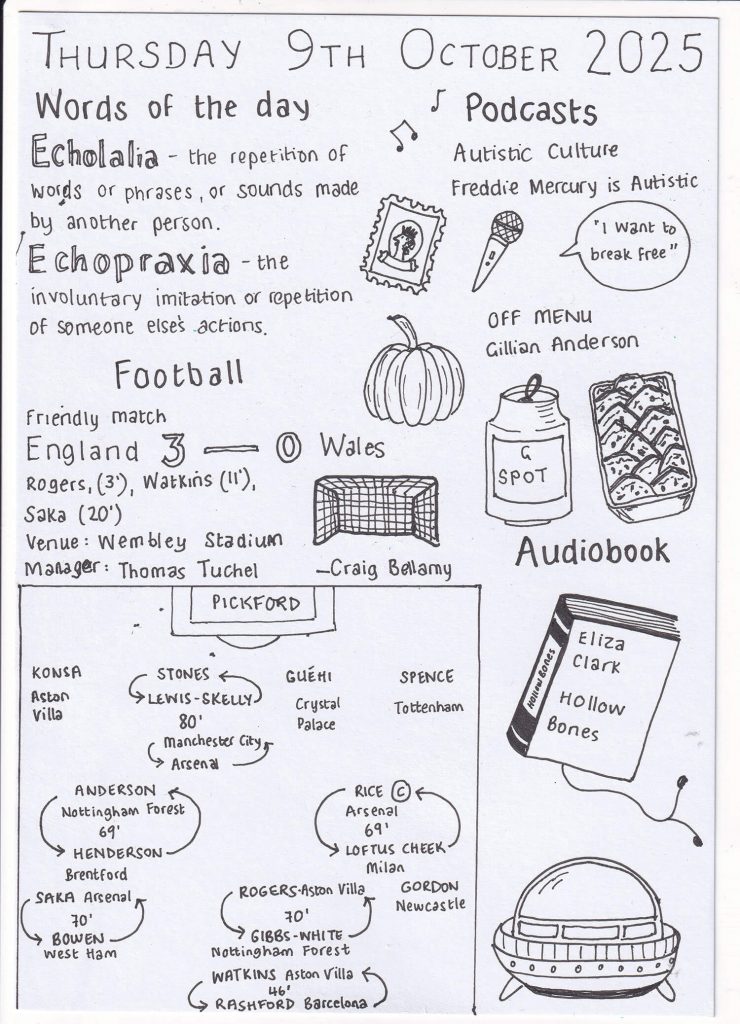 THURSDAY 9TH OCTOBER 2025
Words of the day
Echolalia - the repetition of
words or phrases, or sounds made
by another person.
Echopraxia - the
involuntary imitation or repetition
of someone else's actions.
Podcasts
Autistic Culture
Freddie Mercury is Autistic
"I want to
break free"
OFF MENU
Gillian Anderson
G
SPOT
Football
Friendly match
England 3 — 0 Wales
Rogers, (3'), Watkins (11'),
Saka (20')
Venue: Wembley Stadium
Manager: Thomas Tuchel - Craig Bellamy
PICKFORD
KONSA
Aston
Villa
STONES
LEWIS-SKELLY
80'
Manchester City
Arsenal
GUÉHI
Crystal
Palace
SPENCE
Tottenham
ANDERSON
Nottingham Forest
69'
HENDERSON
Brentford
RICE C
Arsenal
69'
LOFTUS CHEEK
Milan
SAKA Arsenal
70'
BOWEN
West Ham
ROGERS-Aston Villa
70'
GIBBS-WHITE
Nottingham Forest
GORDON
Newcastle
WATKINS Aston Villa
46'
RASHFORD Barcelona
Audiobook
Hollow Bones
Eliza
Clark
Hollow
Bones